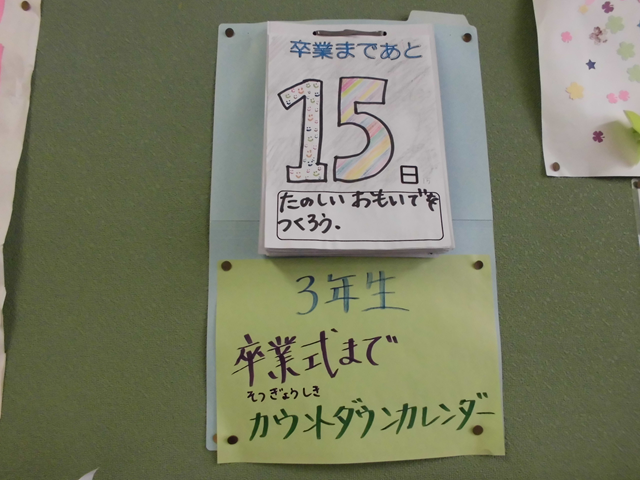 卒業まであと
15日
たのしい おもいでを
つくろう.
3年生
卒業式まで
そつぎょうしき
カウントダウンカレンダー